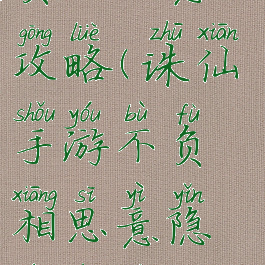 gōng lüè zhū xiān
攻略(诛仙
shǒu yóu bù fù
手游不负
xiāng sī yì yǐn
相思意隐